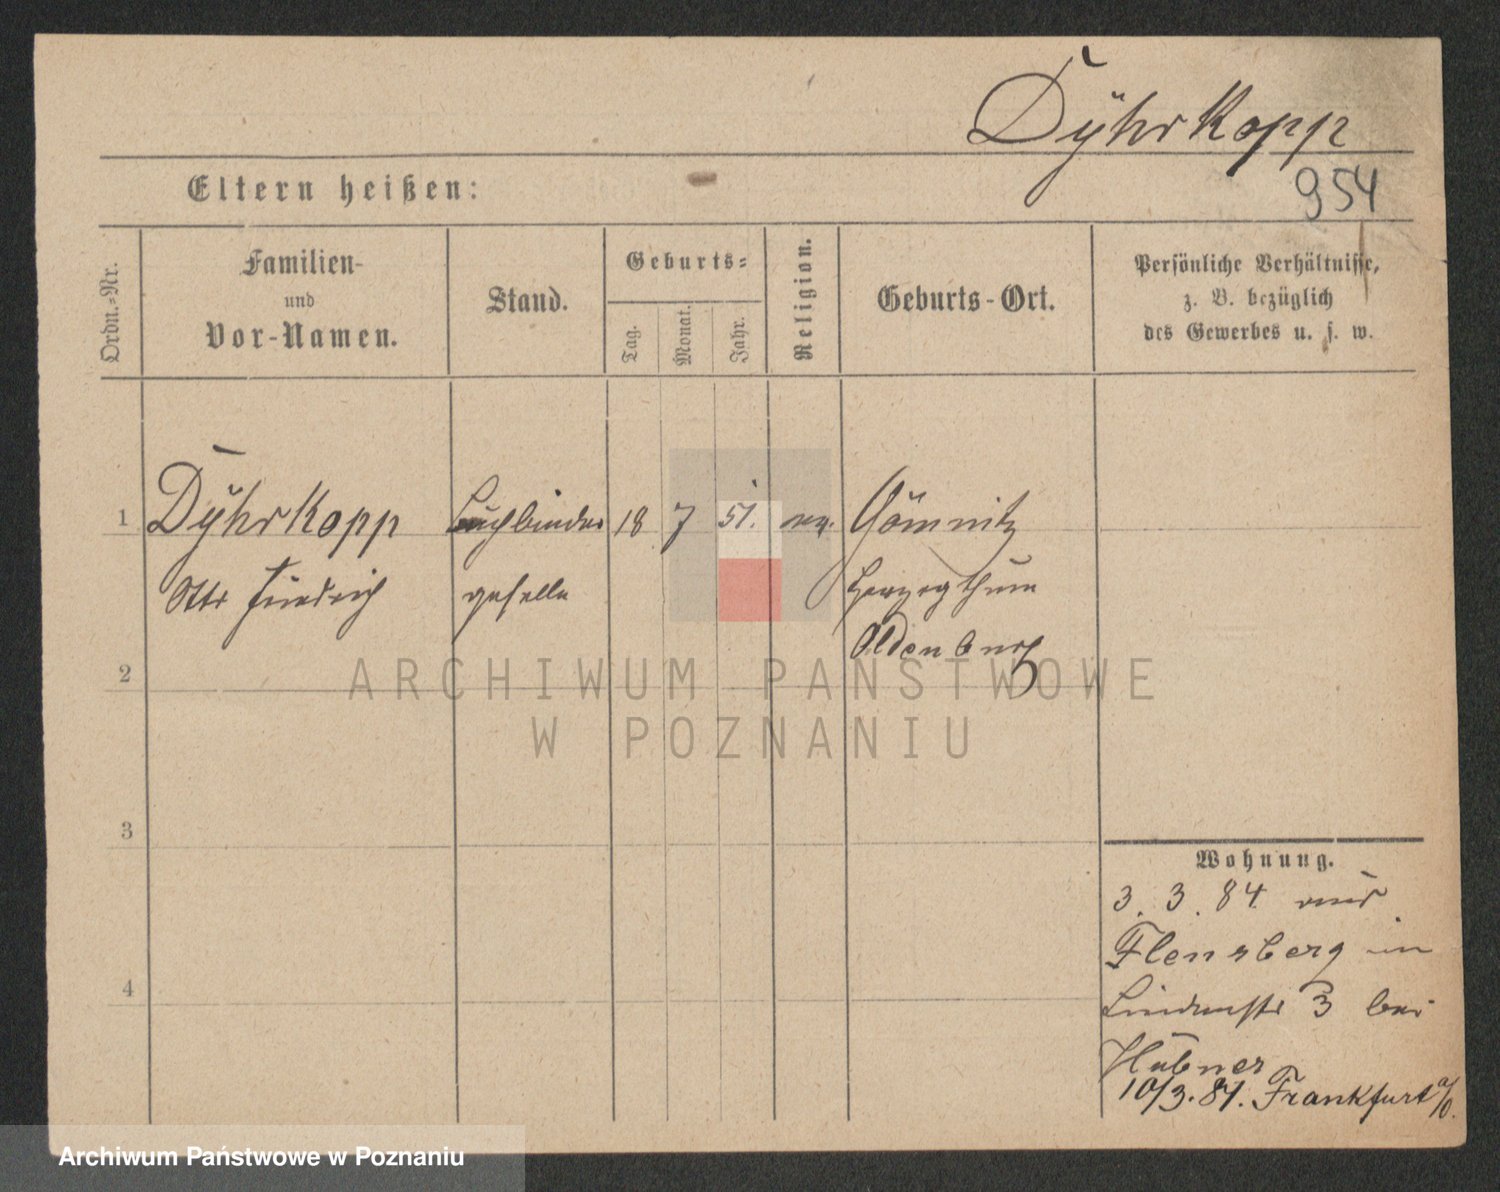 Dÿhrkopp
954
Eltern heißen:
Ordn.=Nr.
Familien-
und
Vor-Namen.
Stand.
Geburts=
Tag.
Monat.
Jahr.
Religion.
Geburts-Ort.
Persönliche Verhältnisse,
z. B. bezüglich
des Gewerbes u. s. w.
1 Dÿhrkopp Buchbinder 18 7 51. ev. Gömnitz
Otto Friedrich geselle Herzogthum
Oldenburg
2
ARCHIWUM PAŃSTWOWE
W POZNANIU
3
4
Wohnung.
3. 3. 84 aus
Flensberg in
Lindenstr 3 bei
Hübner
10/3. 87. Frankfurt a/O.
Archiwum Państwowe w Poznaniu